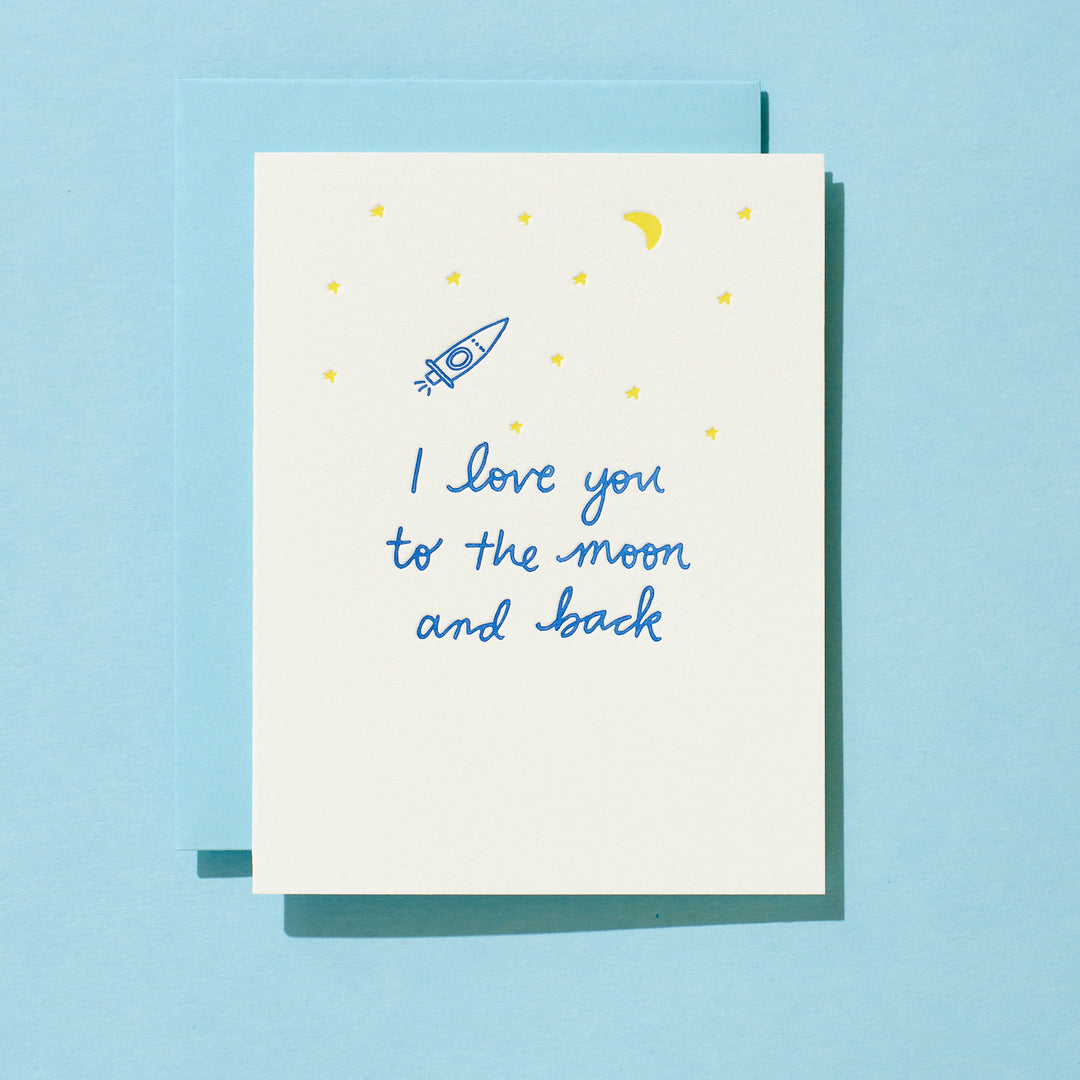 I love you
to the moon
and back